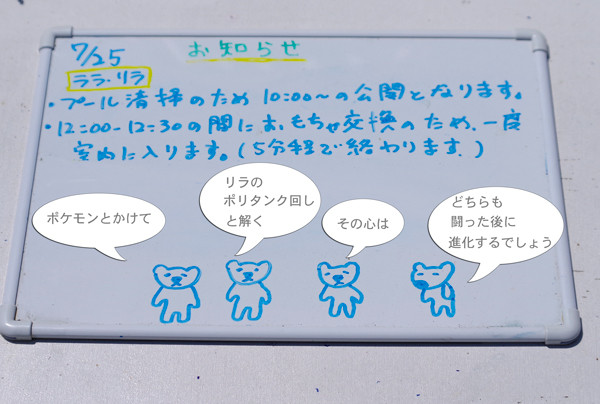 7/25
お知らせ
ララ・リラ
・プール清掃のため 10:00〜の公開となります。
・12:00-12:30の間におもちゃ交換のため、一度
室内に入ります。(5分程で終わります。)
ポケモンとかけて
リラの
ポリタンク回し
と解く
その心は
どちらも
闘った後に
進化するでしょう